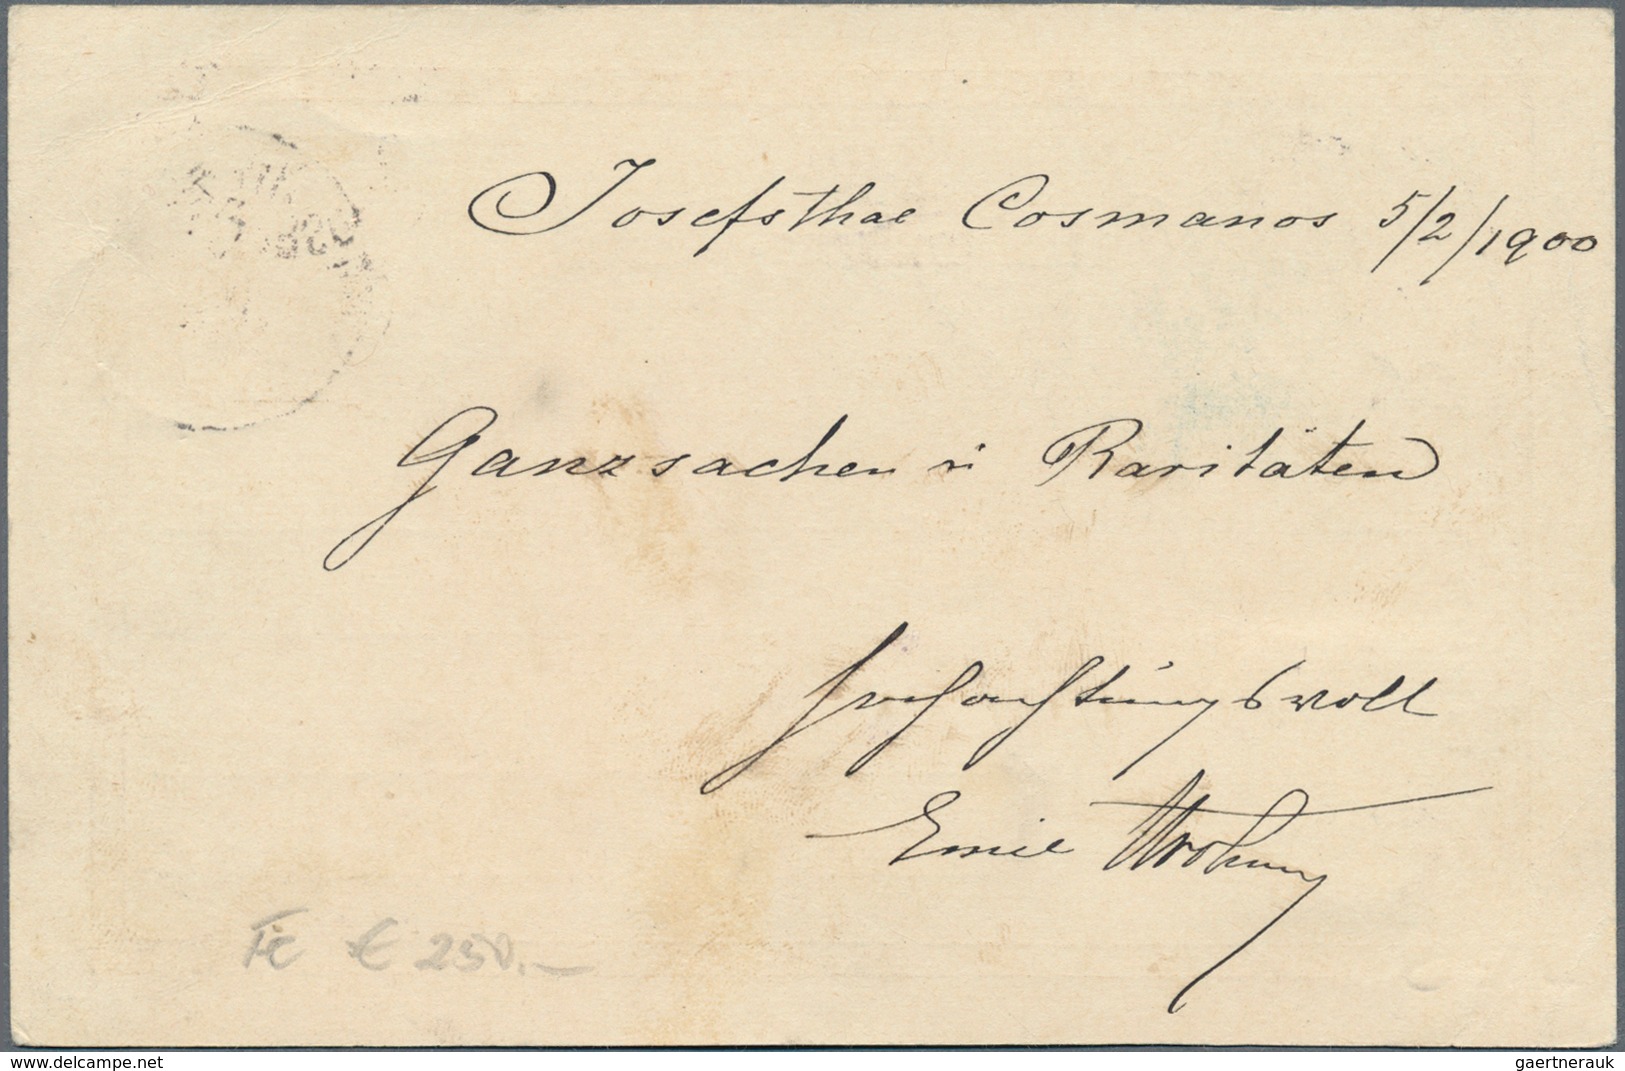 Josefsthal Cosmanos 5/2/1900
Ganzsachen u Raritäten
Hochachtungsvoll
Emil
Fc € 250.—
www.delcampe.net
gaertnerauk